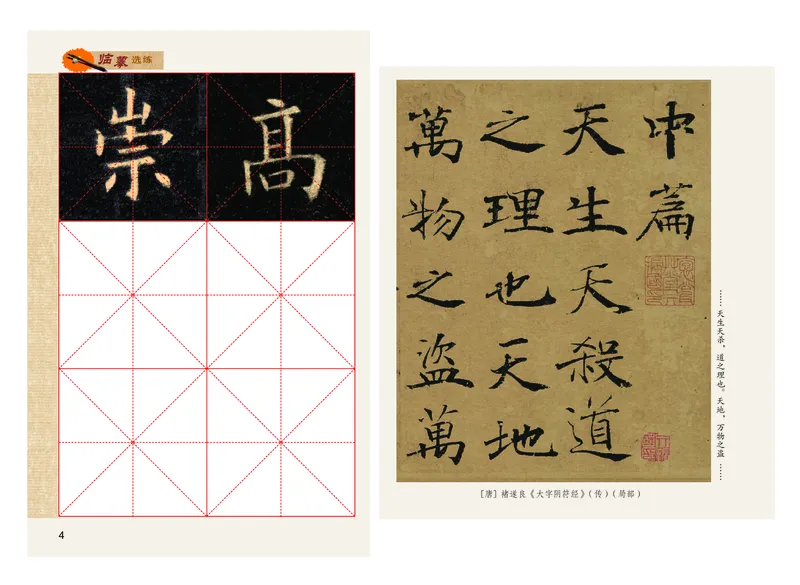 临摹选练
崇高
4
中篇
天生天殺道
之理也天地
萬物之盜萬
……天生天杀，道之理也。天地，万物之盗……
［唐］褚遂良《大字阴符经》（传）（局部）